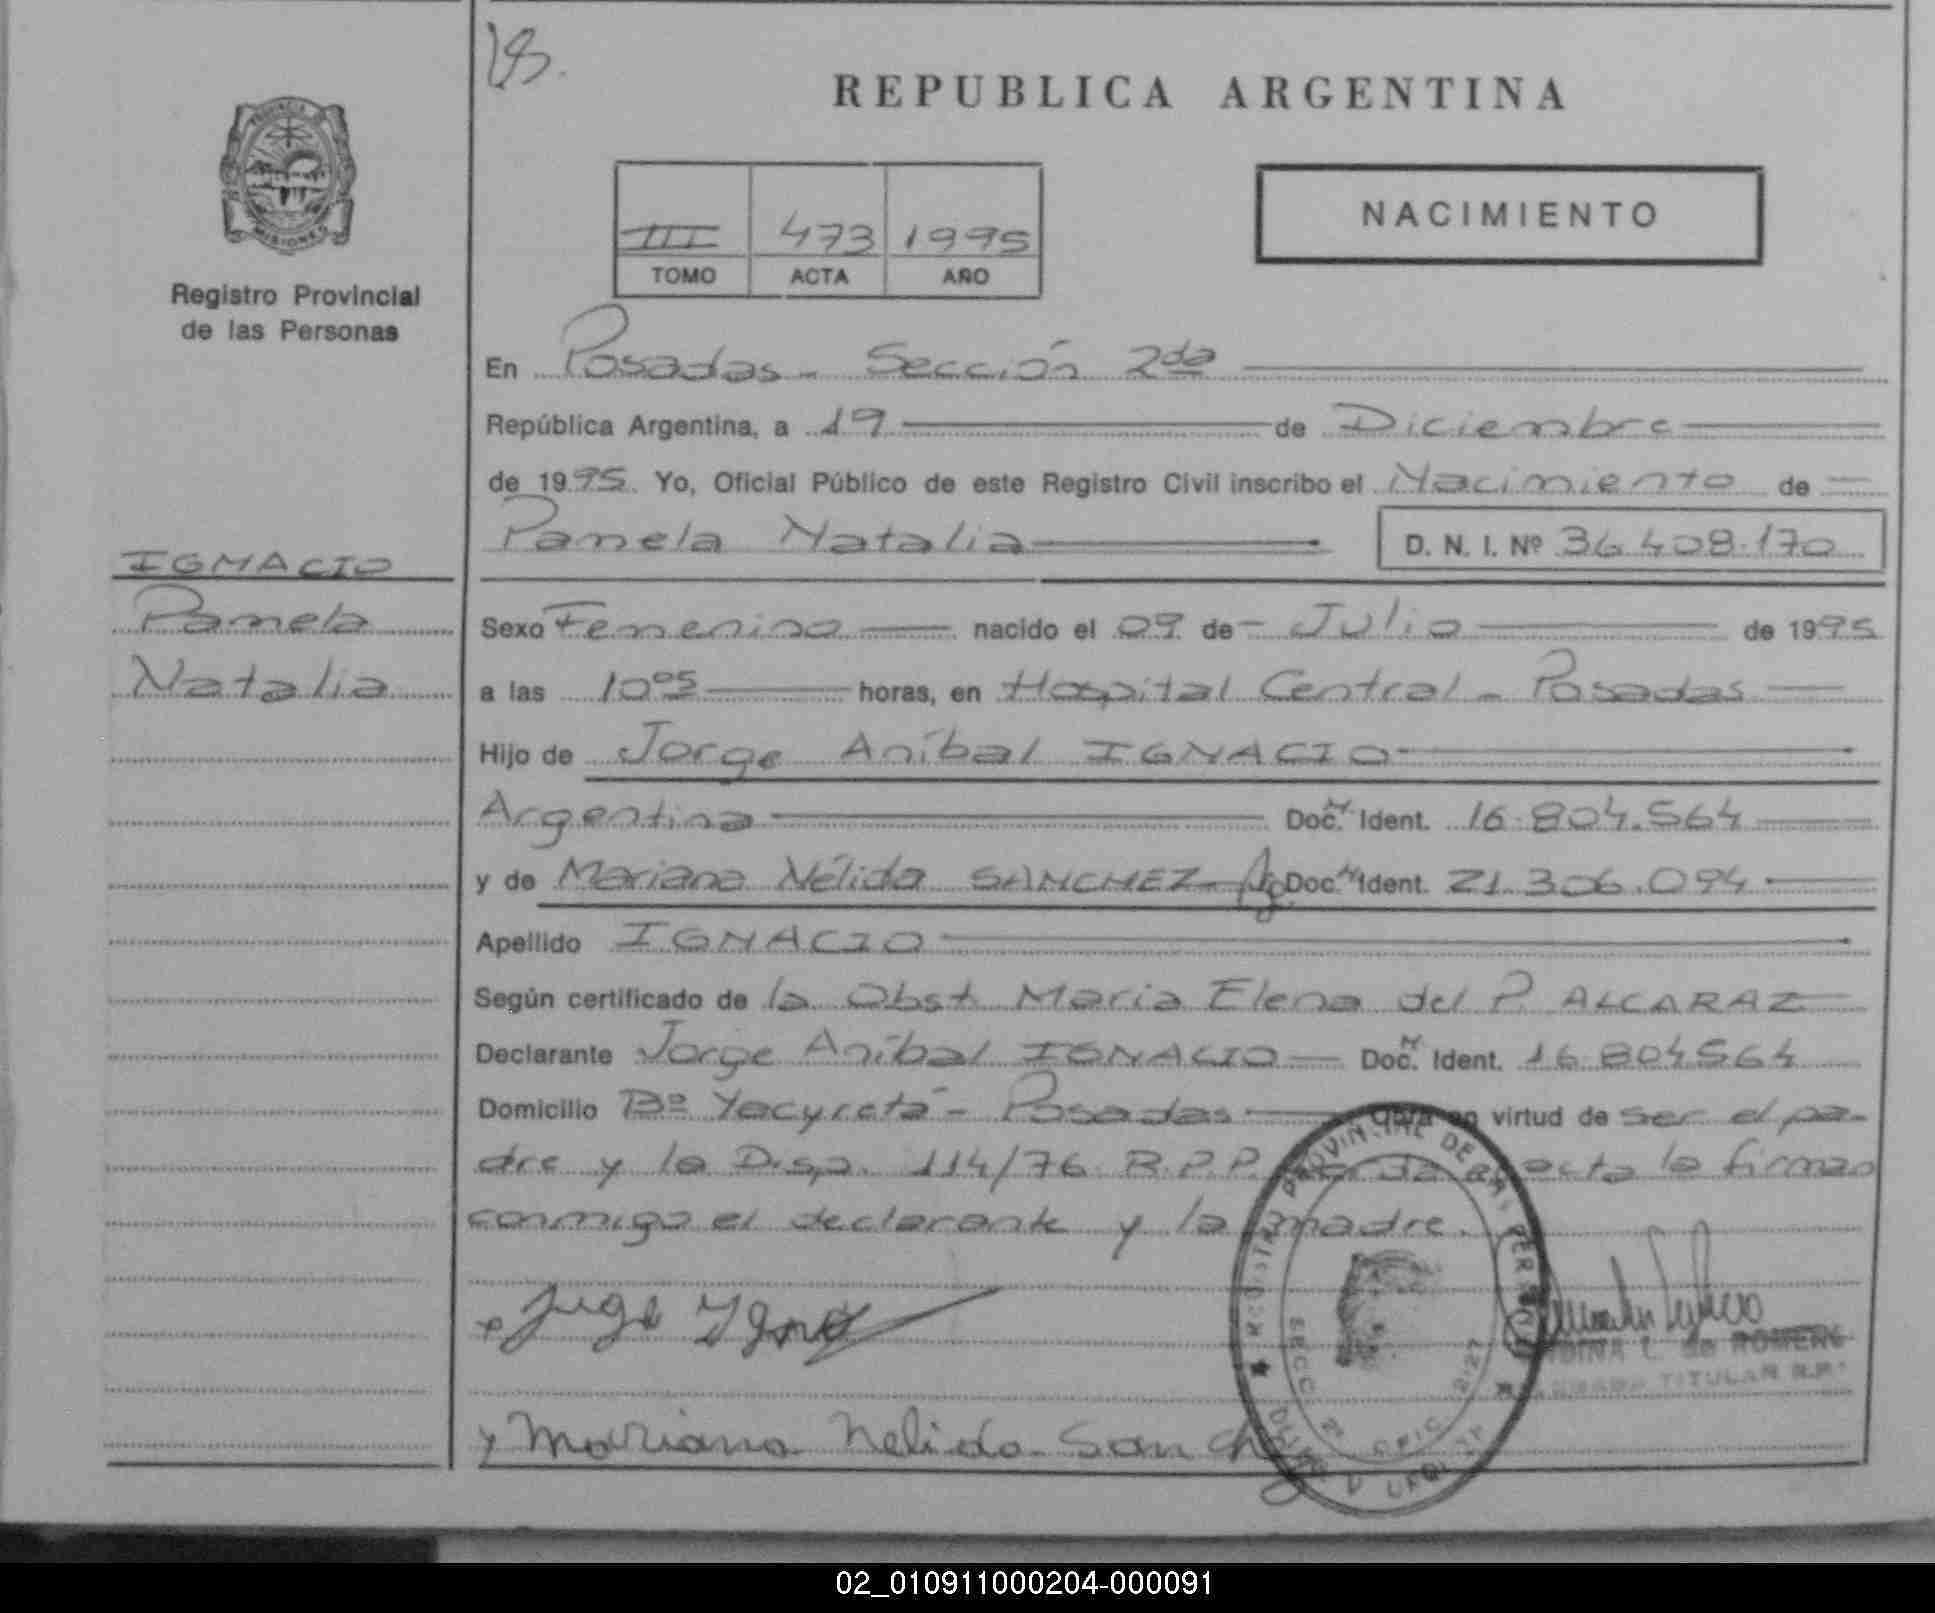 REPUBLICA ARGENTINA
PROVINCIA
MISIONES
Registro Provincial
de las Personas
III 473 1995
TOMO ACTA AÑO
NACIMIENTO
En Posadas - Sección 2da
República Argentina, a 19 de Diciembre
de 1995. Yo, Oficial Público de este Registro Civil inscribo el Nacimiento de
Pamela Natalia D. N. I. Nº 36.408.170
IGNACIO
Pamela
Natalia
Sexo Femenino nacido el 09 de Julio de 1995
a las 10 05 horas, en Hospital Central - Posadas
Hijo de Jorge Aníbal IGNACIO
Argentina Doc. Ident. 16.804.564
y de Mariana Nélida SANCHEZ Doc. Ident. 21.306.094
Apellido IGNACIO
Según certificado de la Obst. Maria Elena del P. ALCARAZ
Declarante Jorge Aníbal IGNACIO Doc. Ident. 16.804564
Domicilio Bº Yacyretá - Posadas Obra en virtud de ser el pa-
dre y la Disp. 114/76 R.P.P. acta la firman
conmigo el declarante y la madre.
Mariana Nelida Sanchez
de ROMERO
TITULAR R.P.
02_010911000204-000091